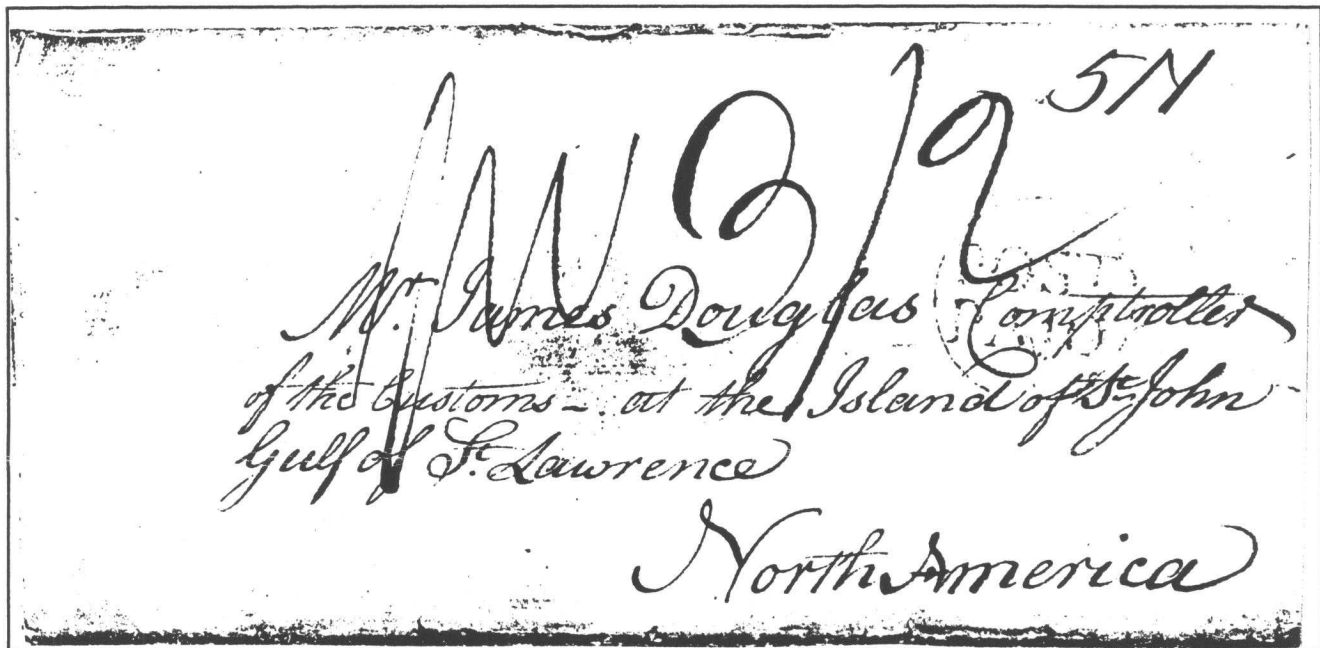 5N
3/2
Mr. James Douglas Comptroller
of the Customs - at the Island of St. John
Gulf of St. Lawrence
North America